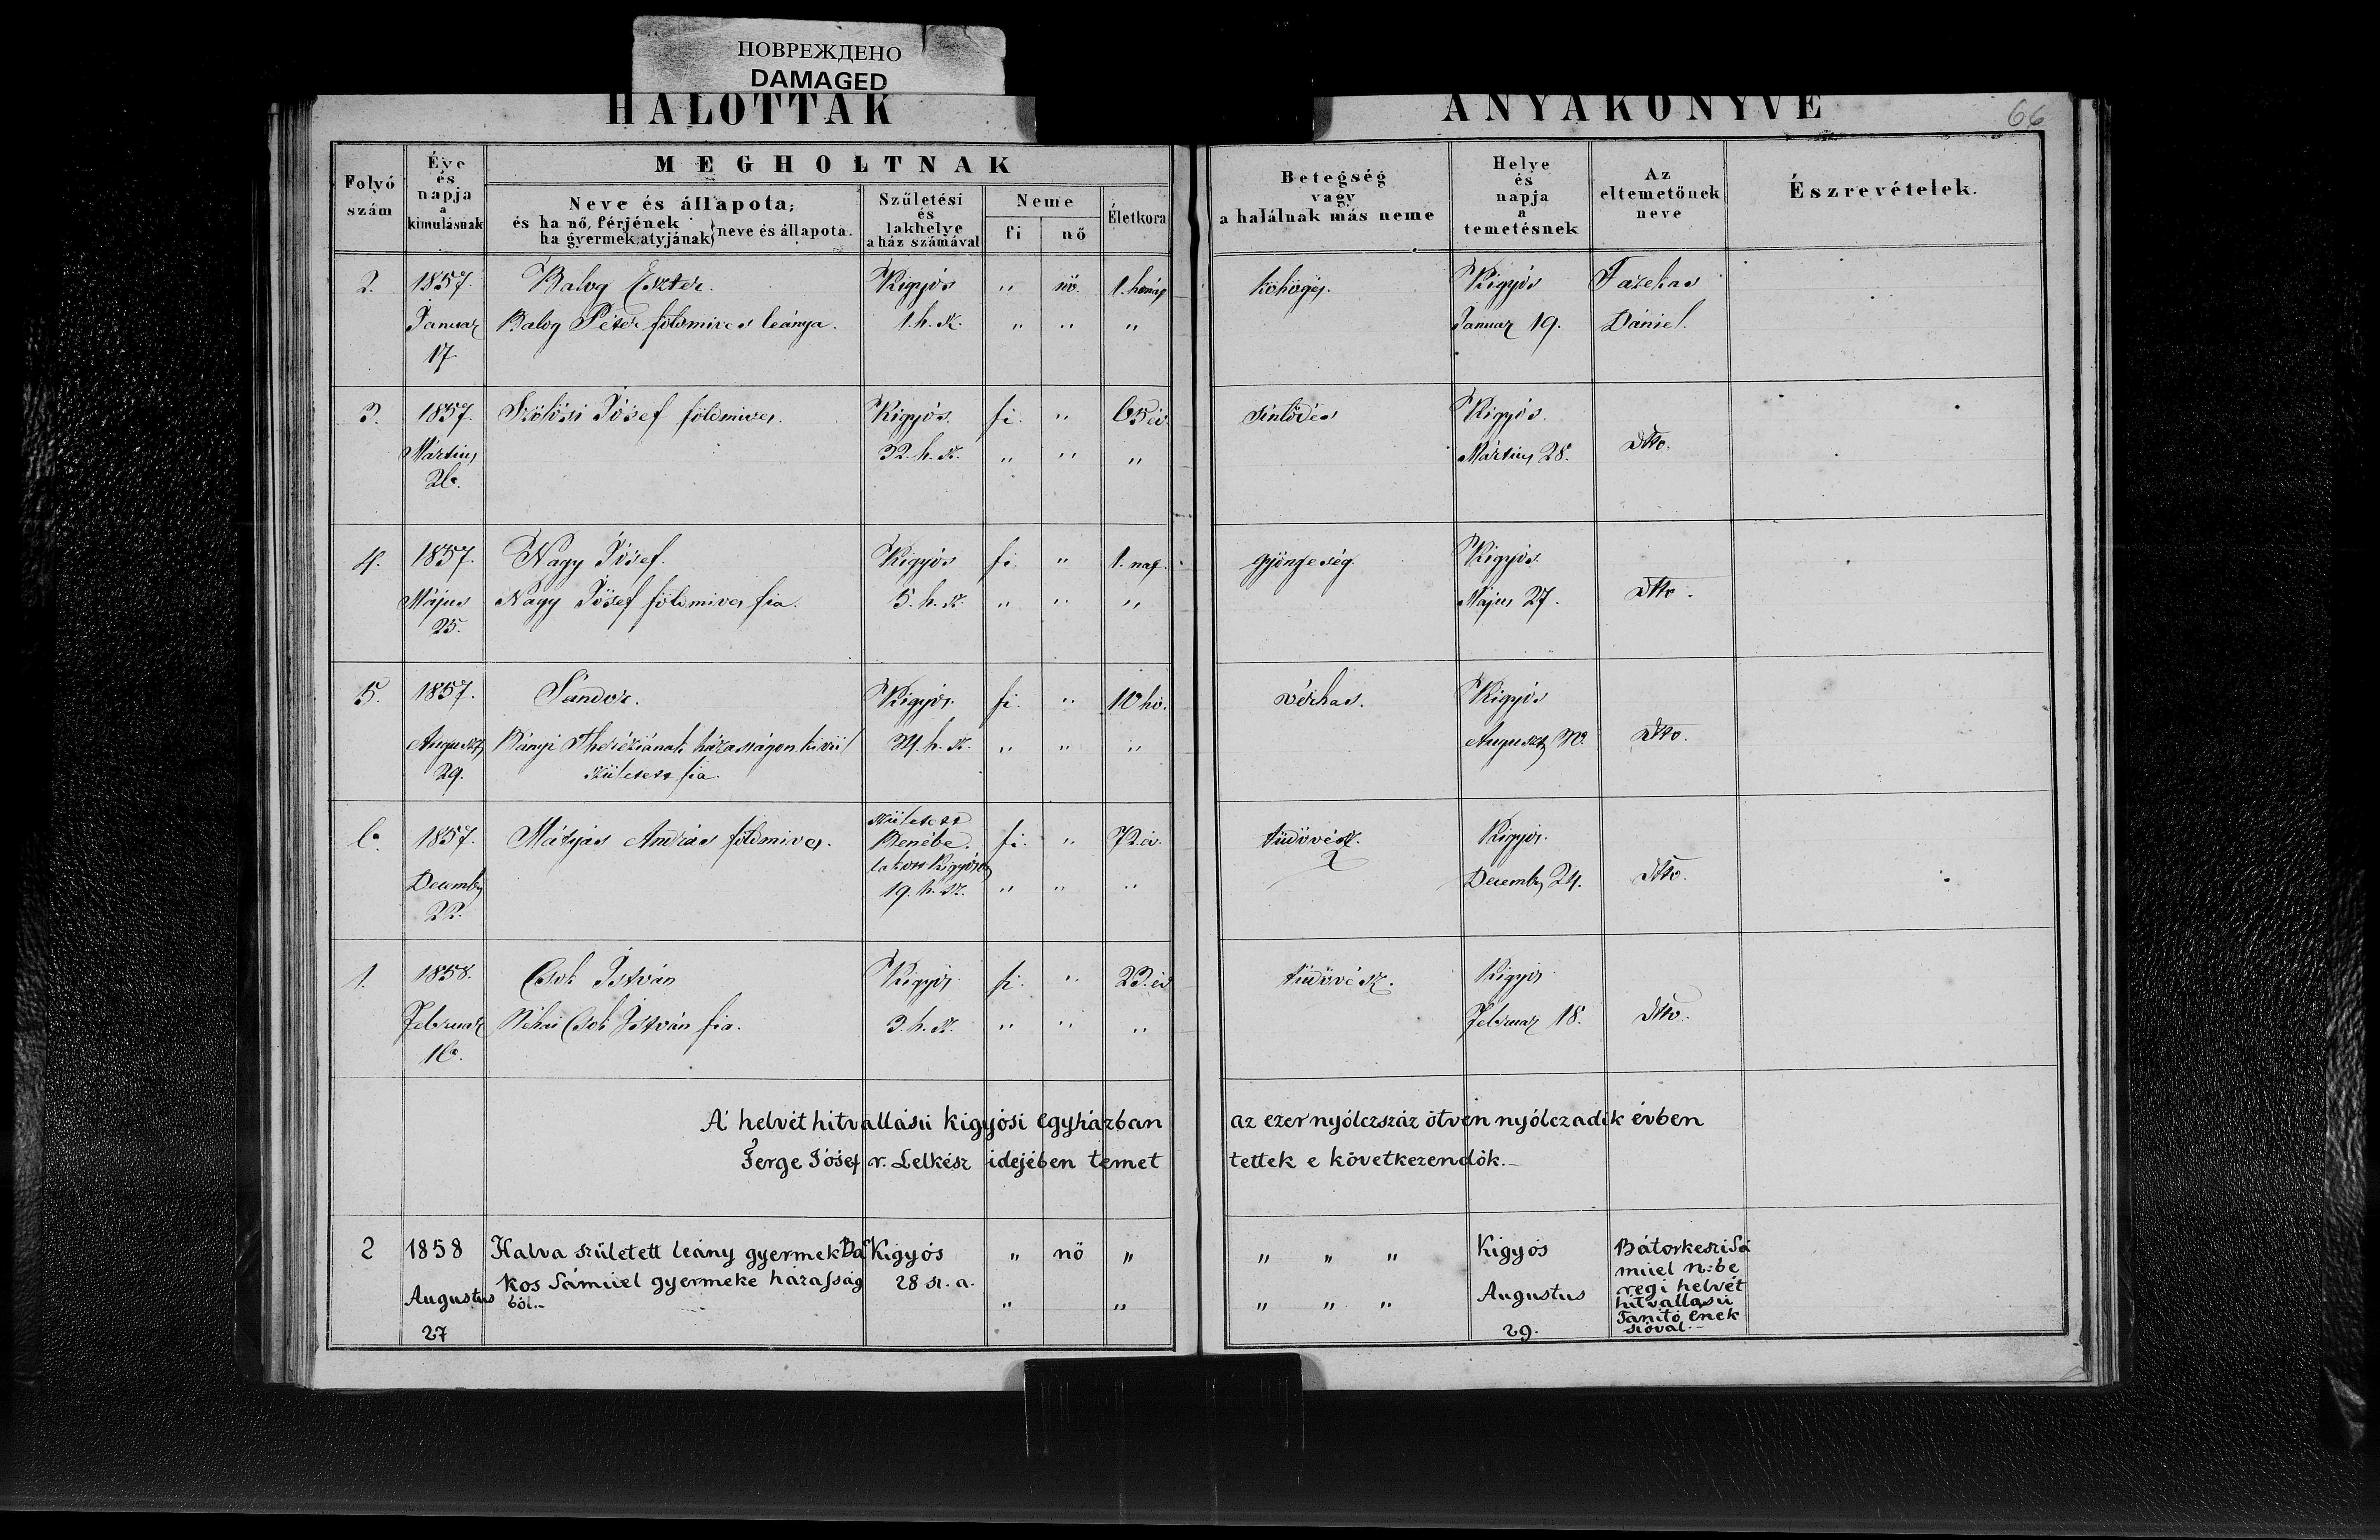 ПОВРЕЖДЕНО
DAMAGED
HALOTTAK ANYAKÖNYVE
66
Folyó szám
Éve és napja a kimulásnak
MEGHOLTNAK
Neve és állapota;
és ha nő, férjének
ha gyermek, atyjának
neve és állapota.
Születési és lakhelye a ház számával
Neme
fi
nő
Életkora
Betegség vagy a halálnak más neme
Helye és napja a temetésnek
Az eltemetőnek neve
Észrevételek.
2. 1857. Balog Eszter. Kigyós " nő. 1. hónap köhögés. Kigyós Fazekas
Januar Balog Péter földmives leánya. 1. h. sz. " " " Januar 19. Dániel.
17
3. 1857. Szőlősi Jósef földmives. Kigyós. fi. " 65 év. sintődés Kigyós.
Mártius 32. h. sz. " " " Mártius 28. Dtto.
26.
4. 1857. Nagy Jósef. Kigyós fi. " 1. nap. gyöngeség. Kigyós.
Május Nagy Jósef földmives fia. 5. h. sz. " " " Május 27. Dtto.
25.
5. 1857. Sándor. Kigyós. fi. " 10 hó. vérhas. Kigyós
Auguszt, Bányi Theréziának házasságon kivül 24. h. sz. " " " Auguszt, Dtto.
29. született fia.
6. 1857. Mátyás András földmives. született Benébe. fi. " 72. év. tüdővész. Kigyós.
Decemb, lakott Kigyóson 19. h. sz. " " " Decemb, 24. Dtto.
22.
1. 1858. Csok István Kigyós fi. " 23. év tüdővész. Kigyós
Februar Néhai Csok István fia. 3. h. sz. " " " Februar 18. Dtto.
16.
A' helvét hitvallásu Kigyósi Egyházban az ezer nyólczszáz ötven nyólczadik évben
Ferge Jósef r. Lelkész idejében temet tettek e következendök.-
2 1858 Halva született leány gyermek Ba Kigyós " nő " " " " Kigyós Bátorkeszi Sá
Augustus kos Sámuel gyermeke házasság 28 sz. a. " " " " " Augustus muel n: be
27 ból.- 29. regi helvét
hitvallasu
Tanító Enek
szóval.-